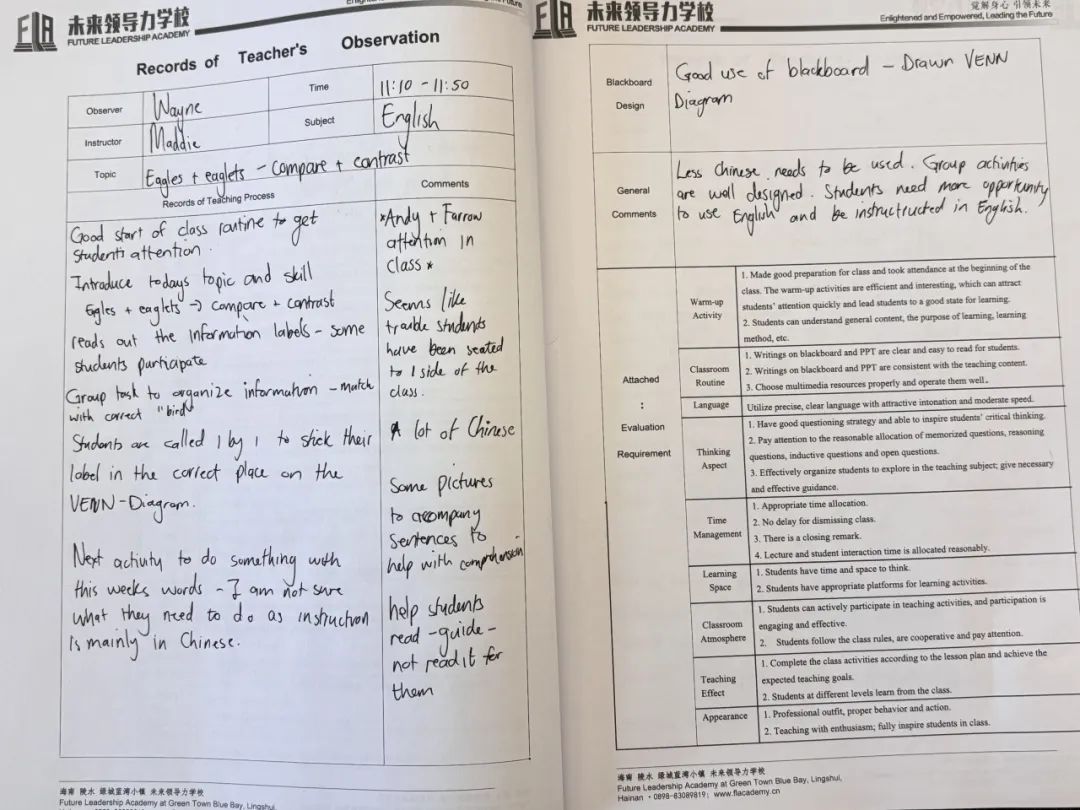 FLA 未来领导力学校
FUTURE LEADERSHIP ACADEMY
Future
Records of Teacher's Observation
Observer Wayne Time 11:10 - 11:50
Instructor Maddie Subject English
Topic Eagles + eaglets - compare + contrast
Records of Teaching Process
Good start of class routine to get
students attention.
Introduce todays topic and skill
Egles + eaglets → compare + contrast
reads out the information labels - some
students participate
Group task to organize information - match
with correct "bird"
Students are called 1 by 1 to stick their
label in the correct place on the
VENN-Diagram.
Next activity to do something with
this weeks words - I am not sure
what they need to do as instruction
is mainly in Chinese.
Comments
*Andy + Farrow
attention in
class *
Seems like
trouble students
have been seated
to 1 side of the
class.
A lot of Chinese
Some pictures
to acompany
sentences to
help with comprehension
help students
read -guide-
not read it for
them
海南 陵水 绿城蓝湾小镇 未来领导力学校
Future Leadership Academy at Green Town Blue Bay, Lingshui,
FLA 未来领导力学校
FUTURE LEADERSHIP ACADEMY
觉解身心 引领未来
Enlightened and Empowered, Leading the Future
Blackboard
Design
Good use of blackboard - Drawn VENN
Diagram
General
Comments
Less Chinese needs to be used. Group activities
are well designed. Students need more opportunity
to use English and be instructructed in English.
Attached
:
Evaluation
Requirement
Warm-up
Activity
1. Made good preparation for class and took attendance at the beginning of the
class. The warm-up activities are efficient and interesting, which can attract
students' attention quickly and lead students to a good state for learning.
2. Students can understand general content, the purpose of learning, learning
method, etc.
Classroom
Routine
1. Writings on blackboard and PPT are clear and easy to read for students.
2. Writings on blackboard and PPT are consistent with the teaching content.
3. Choose multimedia resources properly and operate them well.
Language Utilize precise, clear language with attractive intonation and moderate speed.
Thinking
Aspect
1. Have good questioning strategy and able to inspire students' critical thinking.
2. Pay attention to the reasonable allocation of memorized questions, reasoning
questions, inductive questions and open questions.
3. Effectively organize students to explore in the teaching subject; give necessary
and effective guidance.
Time
Management
1. Appropriate time allocation.
2. No delay for dismissing class.
3. There is a closing remark.
4. Lecture and student interaction time is allocated reasonably.
Learning
Space
1. Students have time and space to think.
2. Students have appropriate platforms for learning activities.
Classroom
Atmosphere
1. Students can actively participate in teaching activities, and participation is
engaging and effective.
2. Students follow the class rules, are cooperative and pay attention.
Teaching
Effect
1. Complete the class activities according to the lesson plan and achieve the
expected teaching goals.
2. Students at different levels learn from the class.
Appearance
1. Professional outfit, proper behavior and action.
2. Teaching with enthusiasm; fully inspire students in class.
海南 陵水 绿城蓝湾小镇 未来领导力学校
Future Leadership Academy at Green Town Blue Bay, Lingshui,
Hainan · 0898-83089819; www.flacademy.cn